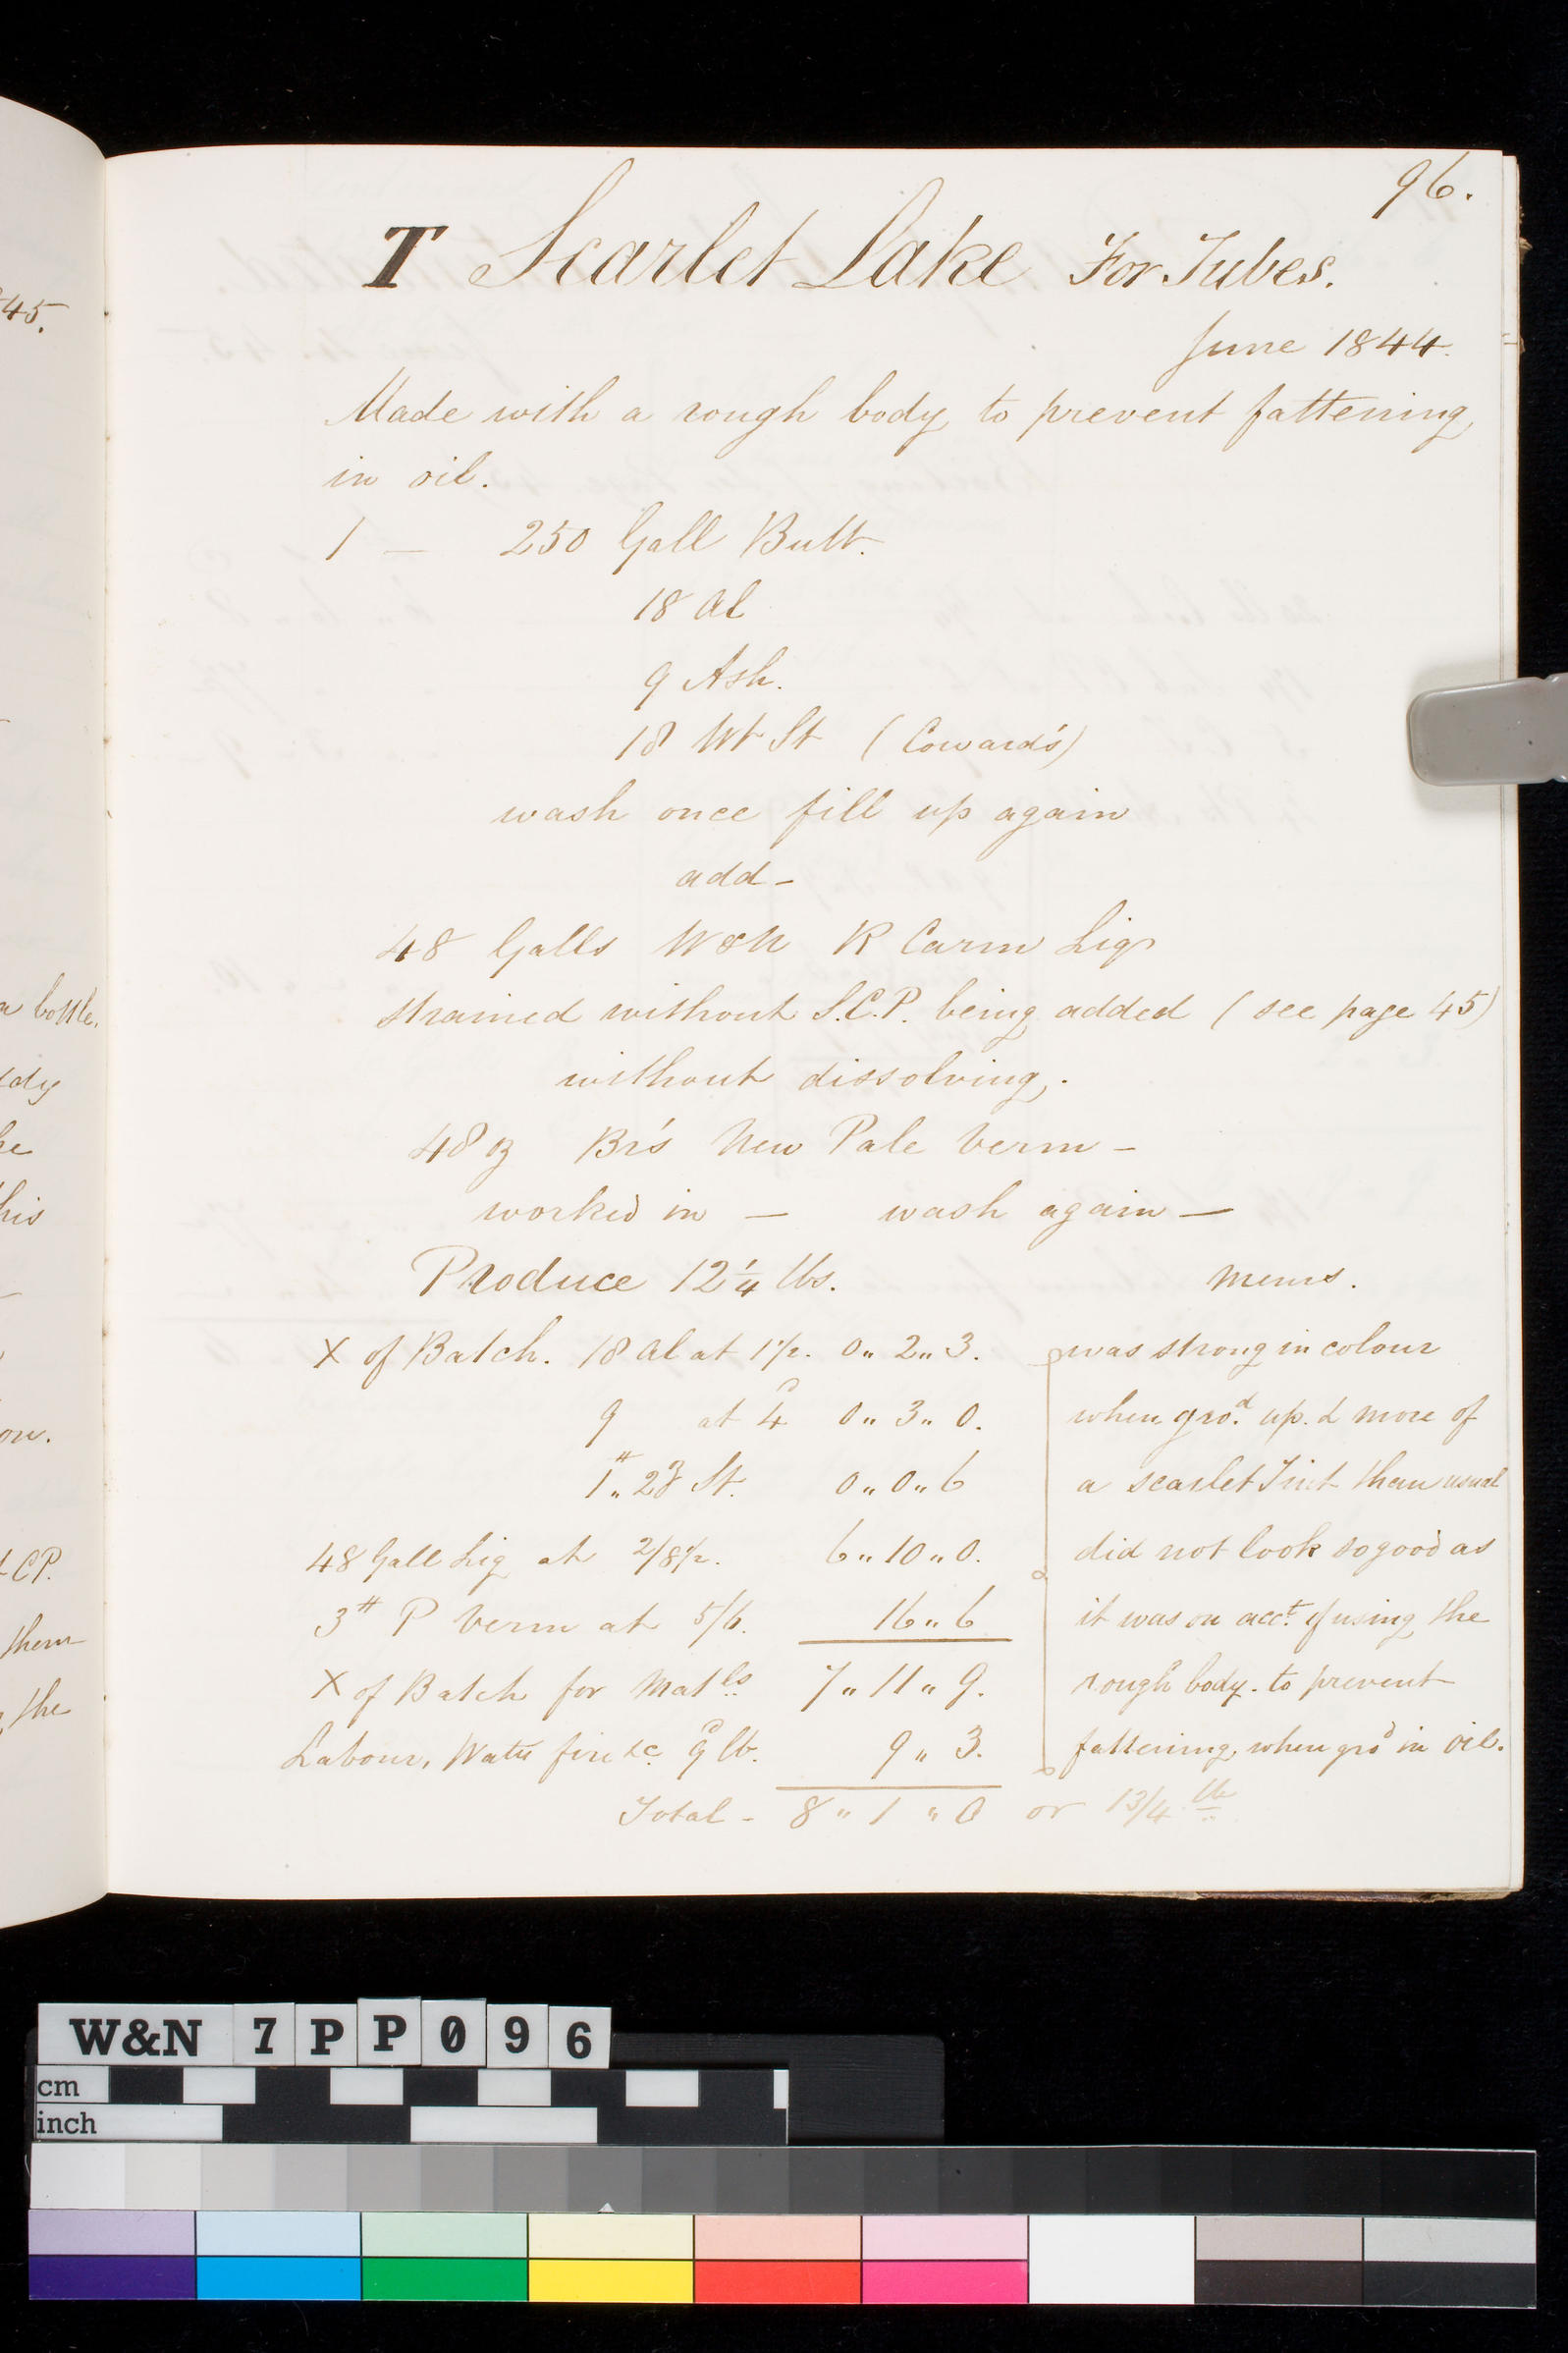 45.
a bottle.
he
his
on.
CP.
them
the
96.
T Scarlet Lake For Tubes.
June 1844.
Made with a rough body to prevent fattening
in oil.
1 — 250 Gall Butt.
18 Al
9 Ash.
18 Wt St (Coward's)
wash once fill up again
add –
48 Galls W&N R Carm Liq
strained without S.C.P. being added (see page 45)
without dissolving.
48 oz Br's New Pale Verm –
worked in — wash again —
Produce 12 1/4 lbs.
Mems.
X of Batch. 18 Al at 1 1/2. 0 „ 2 „ 3.
9 at 4 0 „ 3 „ 0.
1 # „ 2 oz St. 0 „ 0 „ 6
48 Gall Liq at 2/8 1/2. 6 „ 10 „ 0.
3 # P Verm at 5/6. 16 „ 6
X of Batch for Matls 7 „ 11 „ 9.
Labour, Water fire &c. 9 lb. 9 „ 3.
Total – 8 „ 1 „ 0 or 13/4 lb
was strong in colour
when gro.d up. & more of
a scarlet Tint than usual
did not look so good as
it was on acct. of using the
rough body. to prevent
fattening, when grod in oil.
W&N 7PP096
cm
inch